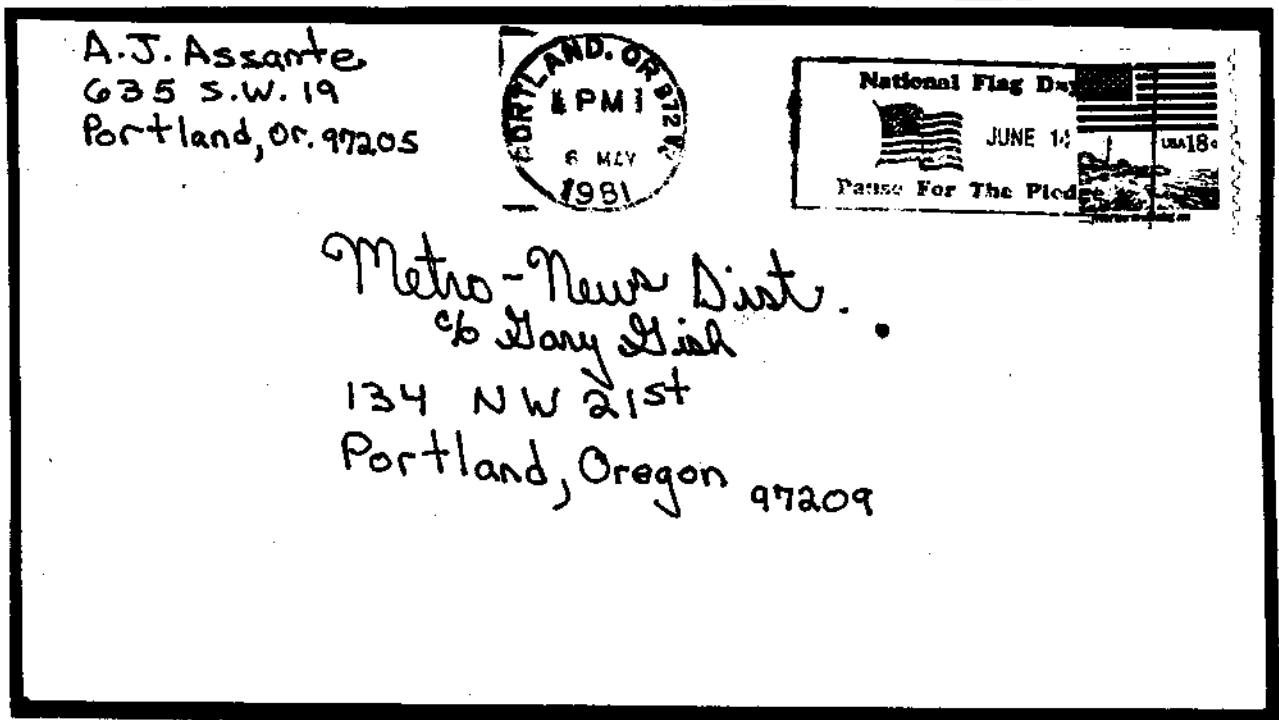 A.J. Assante
635 S.W. 19
Portland, Or. 97205
PORTLAND, OR 972
PM
6 MAY
1981
National Flag Day
JUNE 14
Pause For The Pledge
USA 18c
Metro-News Dist.
c/o Gary Gish
134 NW 21st
Portland, Oregon 97209